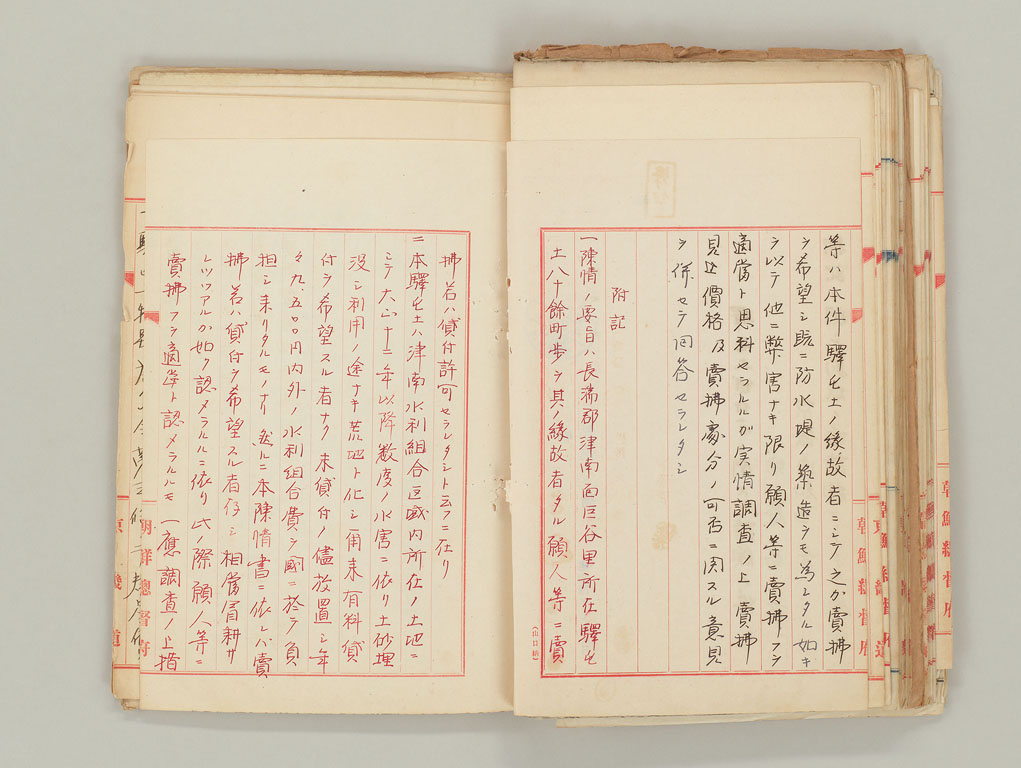 等ハ本件驛土ノ縁故者ニシテ之カ賣拂
ヲ希望シ既ニ防水堤ノ築造ヲモ為シタル如キ
ヲ以テ他ニ弊害ナキ限リ願人等ニ賣拂フヲ
適當ト思料セラルルガ実情調査ノ上賣拂
見込價格及賣拂處分ノ可否ニ関スル意見
ヲ併セテ回答セラレタシ
附記
一陳情ノ要旨ハ長湍郡津南面巨谷里所在驛
土八十餘町歩ヲ其ノ縁故者タル願人等ニ賣
(山口納)
拂若ハ貸付許可セラレタシト云フニ在リ
二本驛土ハ津南水利組合区域内所在ノ土地ニ
シテ大正十二年以降数度ノ水害ニ依リ土砂埋
没シ利用ノ途ナキ荒地ト化シ爾来有料貸
付ヲ希望スル者ナク未貸付ノ儘放置シ年
々九、五〇〇円内外ノ水利組合費ヲ國ニ於テ負
担シ来リタルモノナリ然ルニ本陳情書ニ依レハ賣
拂若ハ貸付ヲ希望スル者存シ相當冒耕サ
レツツアルカ如ク認メラルルニ依リ此ノ際願人等ニ
賣拂フヲ適当ト認メラルルモ一應調査ノ上措
朝鮮總督府
京畿道